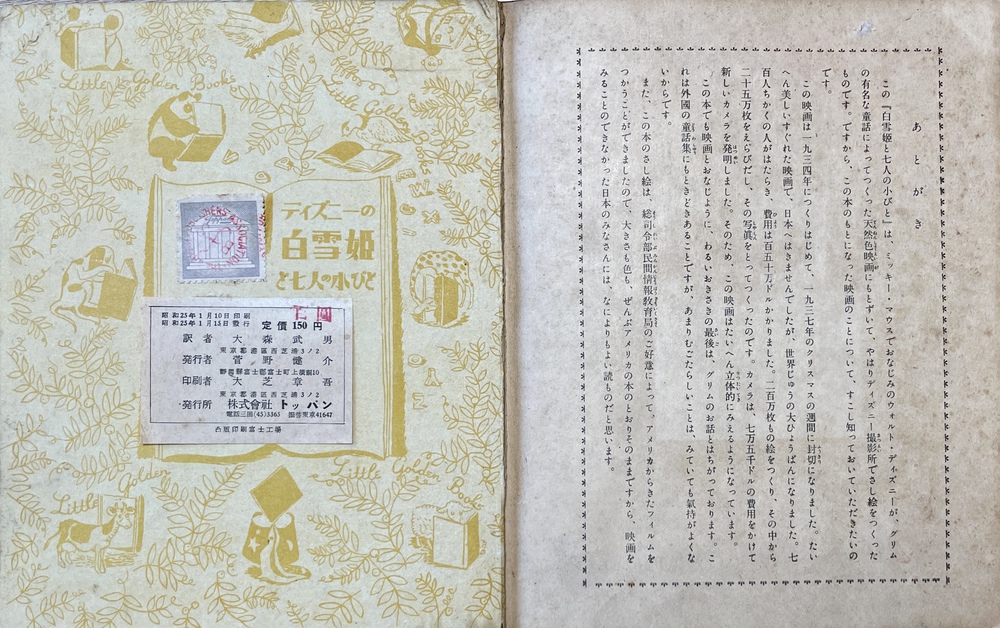 Little Golden Books
Little Golden Books
ディズニーの
白雪姫
と七人の小びと
昭和25年1月10日印刷
昭和25年1月15日發行
定價150円
訳者 大森武男
東京都港區西芝浦3ノ2
発行者 菅野健介
靜岡縣富士郡富士町上横割10
印刷者 大芝章吾
東京都港區西芝浦3ノ2
発行所 株式會社トッパン
電話三田(45)3365 振替東京41647
凸版印刷富士工場
Little Golden Books
Little Golden Books
あとがき
この『白雪姫と七人の小びと』は、ミッキー・マウスでおなじみのウォルト・ディズニーが、グリム
の有名な童話によってつくった天然色映画にもとずいて、やはりディズニー撮影所でさし絵をつくった
ものです。ですから、この本のもとになった映画のことについて、すこし知っておいていただきたいの
です。
この映画は一九三四年につくりはじめて、一九三七年のクリスマスの週間に封切になりました。たい
へん美しいすぐれた映画で、日本へはきませんでしたが、世界じゅうの大ひょうばんになりました。七
百人ちかくの人がはたらき、費用は百五十万ドルかかりました。二百万枚もの絵をつくり、その中から
二十五万枚をえらびだし、その写眞をとってつくったのです。カメラは、七万五千ドルの費用をかけて
新しいカメラを発明しました。そのため、この映画はたいへん立体的にみえるようになっています。
この本でも映画とおなじように、わるいおきさきの最後は、グリムのお話とはちがっております。こ
れは外國の童話集にもときどきあることですが、あまりむごたらしいことは、みていても氣持がよくな
いからです。
また、この本のさし絵は、総司令部民間情報敎育局のご好意によって、アメリカからきたフィルムを
つかうことができましたので、大きさも色も、ぜんぶアメリカの本のとおりそのままですから、映画を
みることのできなかった日本のみなさんには、なによりもよい読ものだと思います。